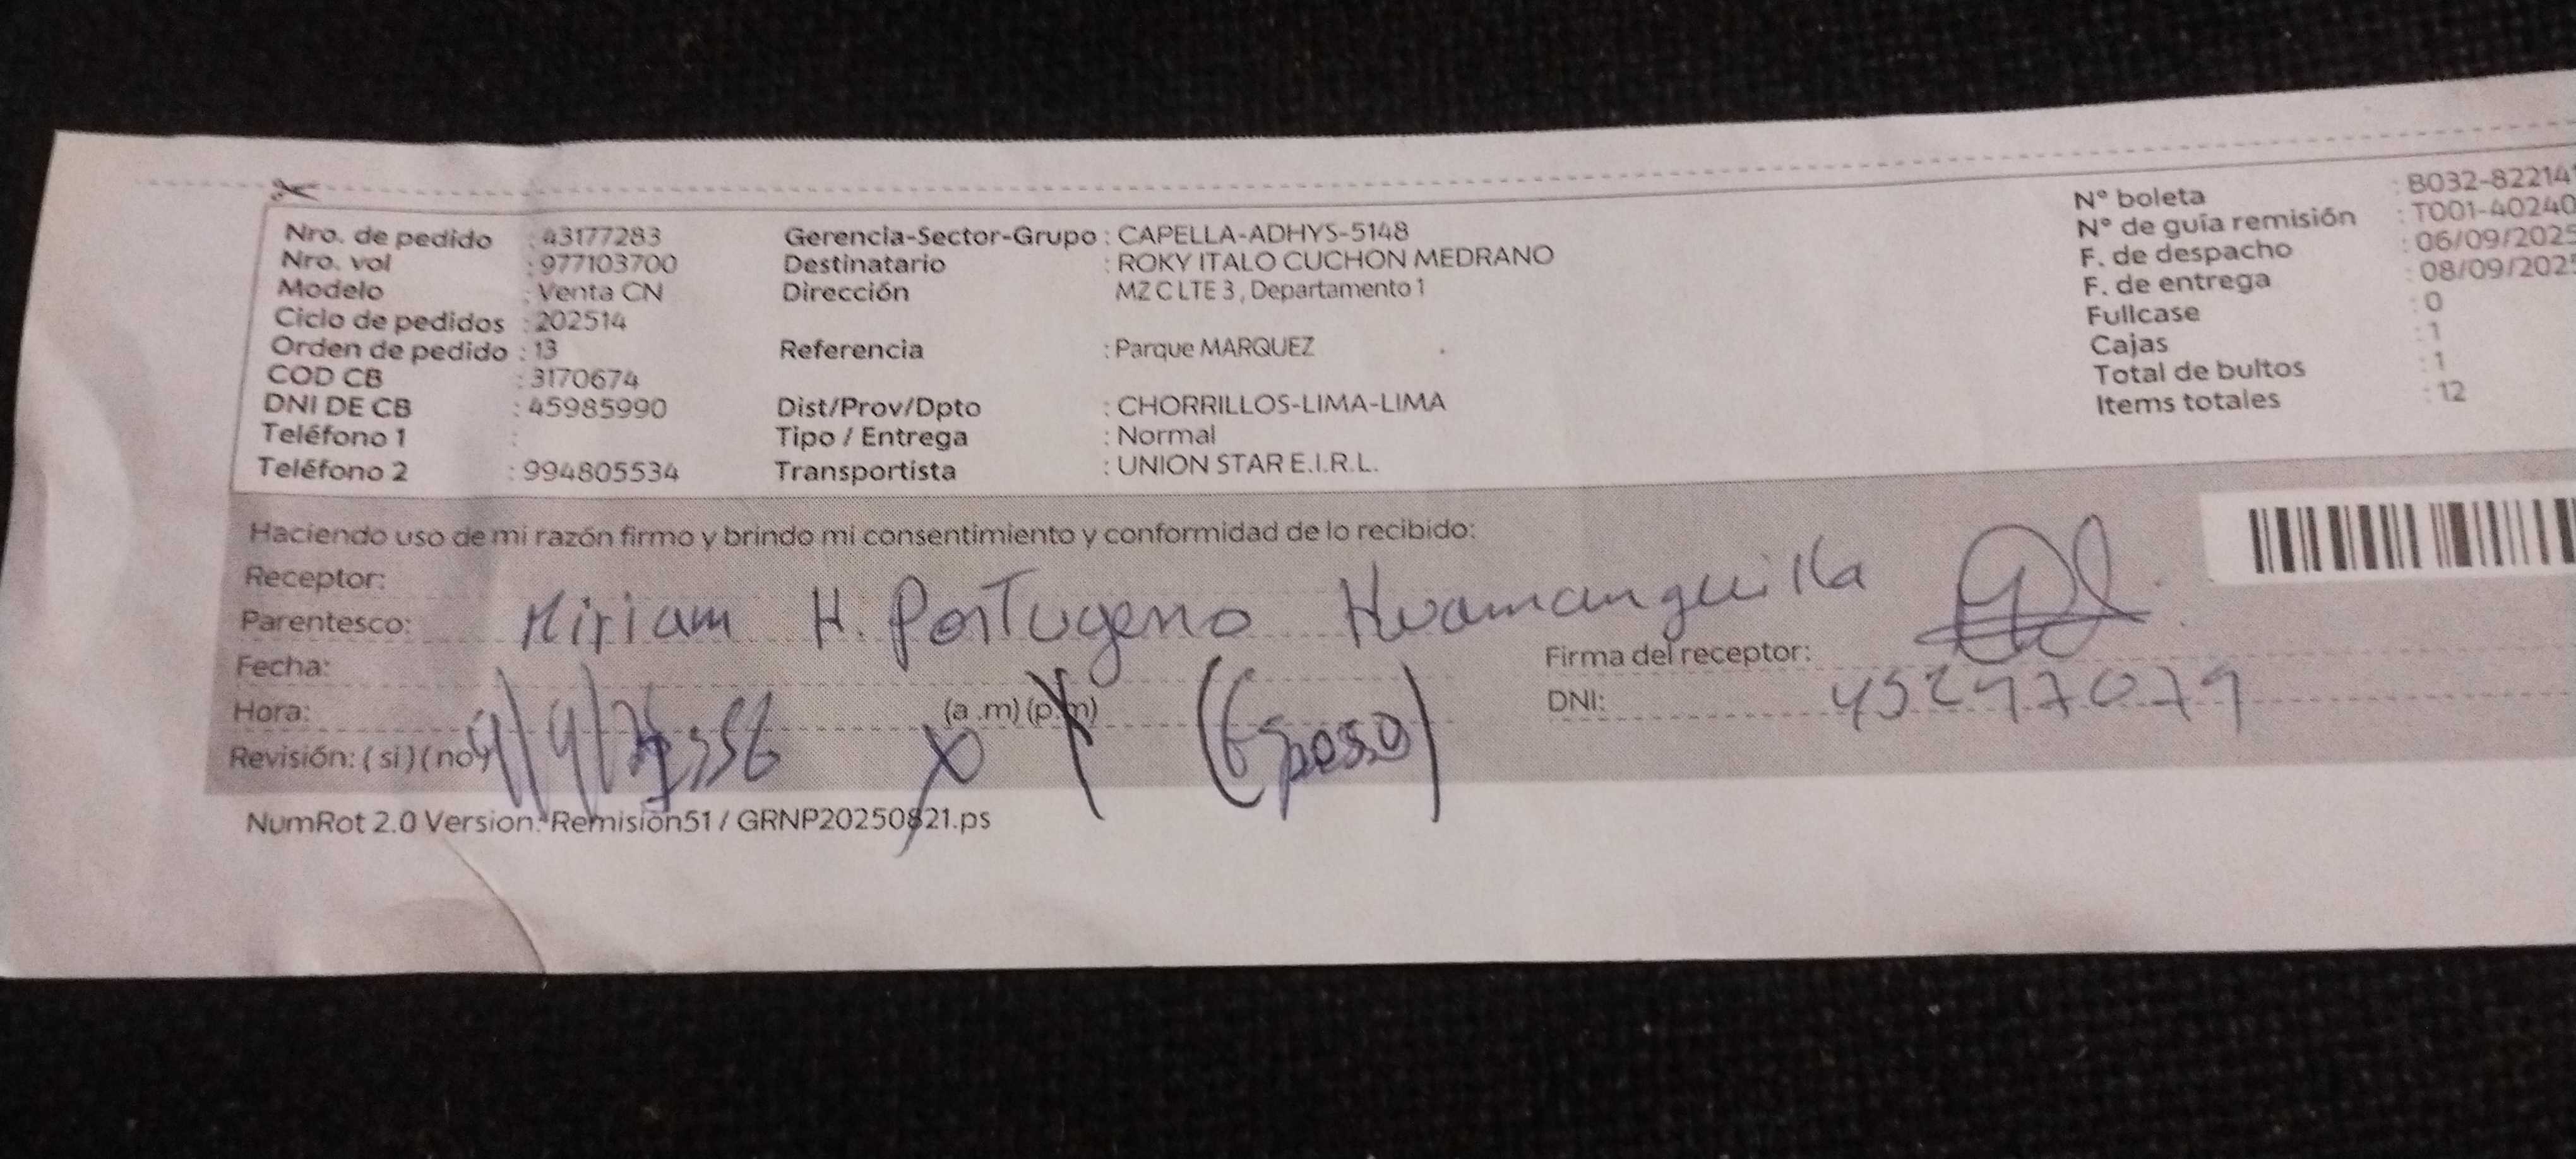 Nro. de pedido : 43177283 Gerencia-Sector-Grupo : CAPELLA-ADHYS-5148 N° boleta : B032-82214
Nro. vol : 977103700 Destinatario : ROKY ITALO CUCHON MEDRANO N° de guía remisión : T001-40240
Modelo : Venta CN Dirección MZ C LTE 3 , Departamento 1 F. de despacho : 06/09/2025
Ciclo de pedidos : 202514 F. de entrega : 08/09/202
Orden de pedido : 13 Referencia : Parque MARQUEZ Fullcase : 0
COD CB : 3170674 Cajas : 1
DNI DE CB : 45985990 Dist/Prov/Dpto : CHORRILLOS-LIMA-LIMA Total de bultos : 1
Teléfono 1 : Tipo / Entrega : Normal Items totales : 12
Teléfono 2 : 994805534 Transportista : UNION STAR E.I.R.L.
Haciendo uso de mi razón firmo y brindo mi consentimiento y conformidad de lo recibido:
Receptor:
Parentesco: Miriam H. Portugeno Huamanguilla
Fecha: Firma del receptor:
Hora: (a .m) (p.m) (Esposo) DNI:
Revisión: ( si ) ( no )
NumRot 2.0 Version: Remision51 / GRNP20250821.ps